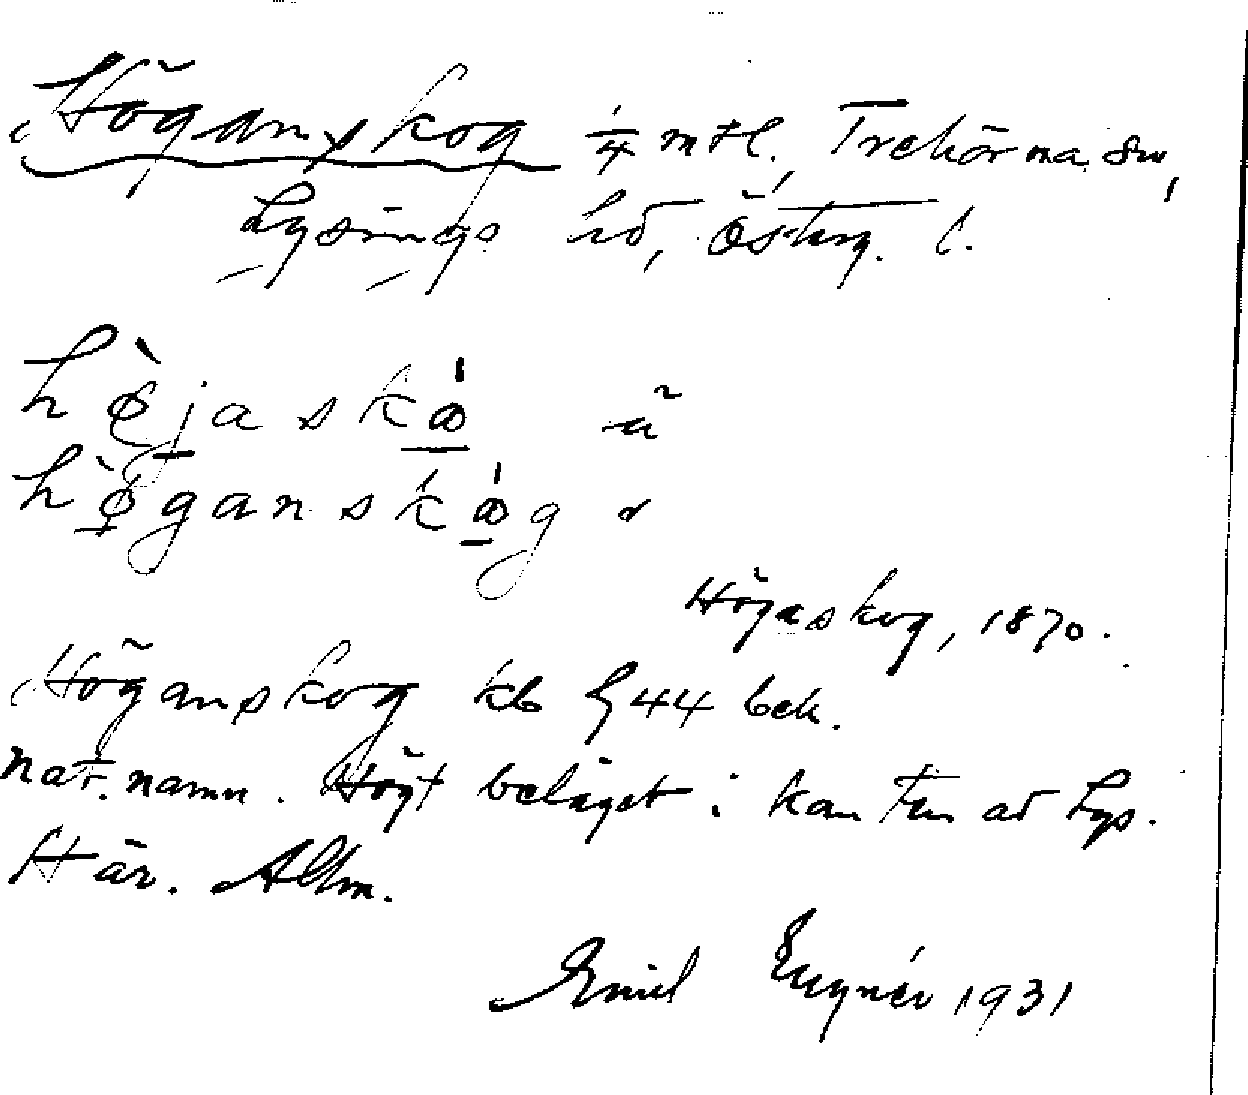 Höganskog 1/4 mtl, Trehörna sn,
Lysings hd, Österg. l.
hø̀jaskó̤ ã
hø̀ganskó̤g
Högaskog, 1870.
Höganskog kb § 44 bek.
nat. namn. Högt beläget i kanten av Lys.
Här. Allm.
Emil 1931